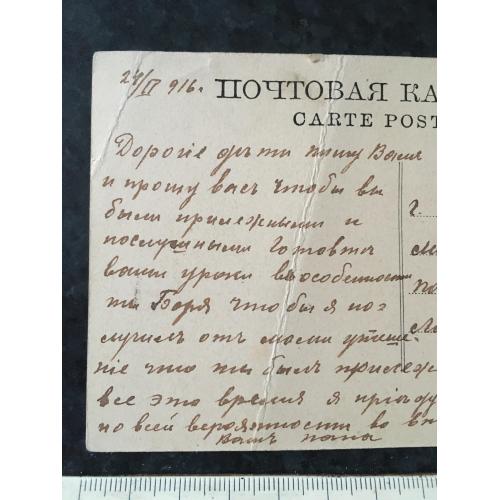 24/IV 916 г.
ПОЧТОВАЯ КА
CARTE POST
Дорогіе дѣти пишу Вамъ
и прошу васъ чтобы вы
были прилежными и
послушными готовте
ваши уроки въ особенности
ты Боря чтобы я по-
г.
лучилъ отъ мамы утѣше-
ніе что ты былъ прилеж
все это время я пріѣду
по всей вероятности во вт
вашъ папа